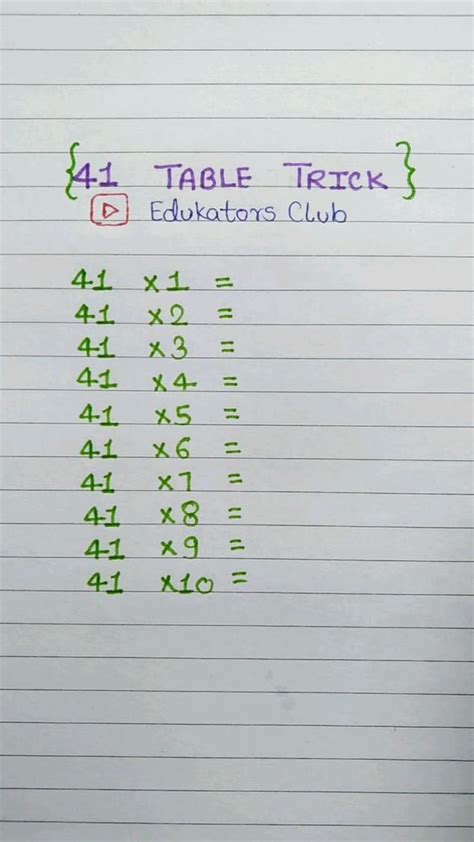 {41 TABLE TRICK}
Edukators Club
41 x1 =
41 x2 =
41 x3 =
41 x4 =
41 x5 =
41 x6 =
41 x7 =
41 x8 =
41 x9 =
41 x10 =